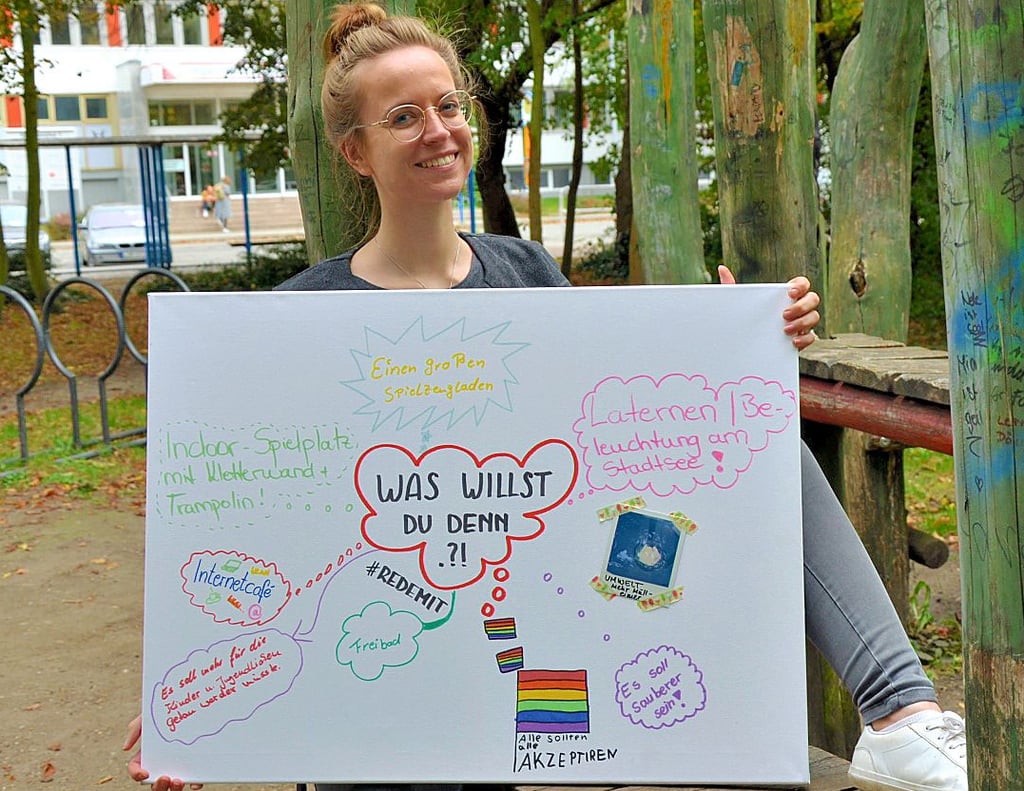 Einen großen
Spielzeugladen
Indoor-Spielplatz
mit Kletterwand +
Trampolin!
Laternen / Be-
leuchtung am
Stadtsee!
WAS WILLST
DU DENN
.?!
#REDEMIT
Internetcafé
@
Freibad
UMWELT-
Mehr Müll-
eimer
Es soll mehr für die
Kinder u. Jugendlichen
getan werden müsste.
Es soll
sauberer
sein!
Alle sollten
alle
AKZEPTIEREN